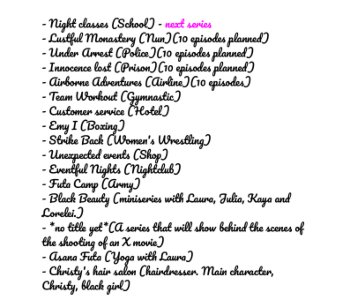 - Night classes (School) - next series
- Lustful Monastery (Nun)(10 episodes planned)
- Under Arrest (Police)(10 episodes planned)
- Innocence lost (Prison)(10 episodes planned)
- Airborne Adventures (Airline)(10 episodes)
- Team Workout (Gymnastic)
- Customer service (Hotel)
- Emy I (Boxing)
- Strike Back (Women's Wrestling)
- Unexpected events (Shop)
- Eventful Nights (Nightclub)
- Futa Camp (Army)
- Black Beauty (miniseries with Laura, Julia, Kaya and
Lorelei.)
- *no title yet*(A series that will show behind the scenes of
the shooting of an X movie)
- Asana Futa (Yoga with Laura)
- Christy's hair salon (hairdresser. Main character,
Christy, black girl)